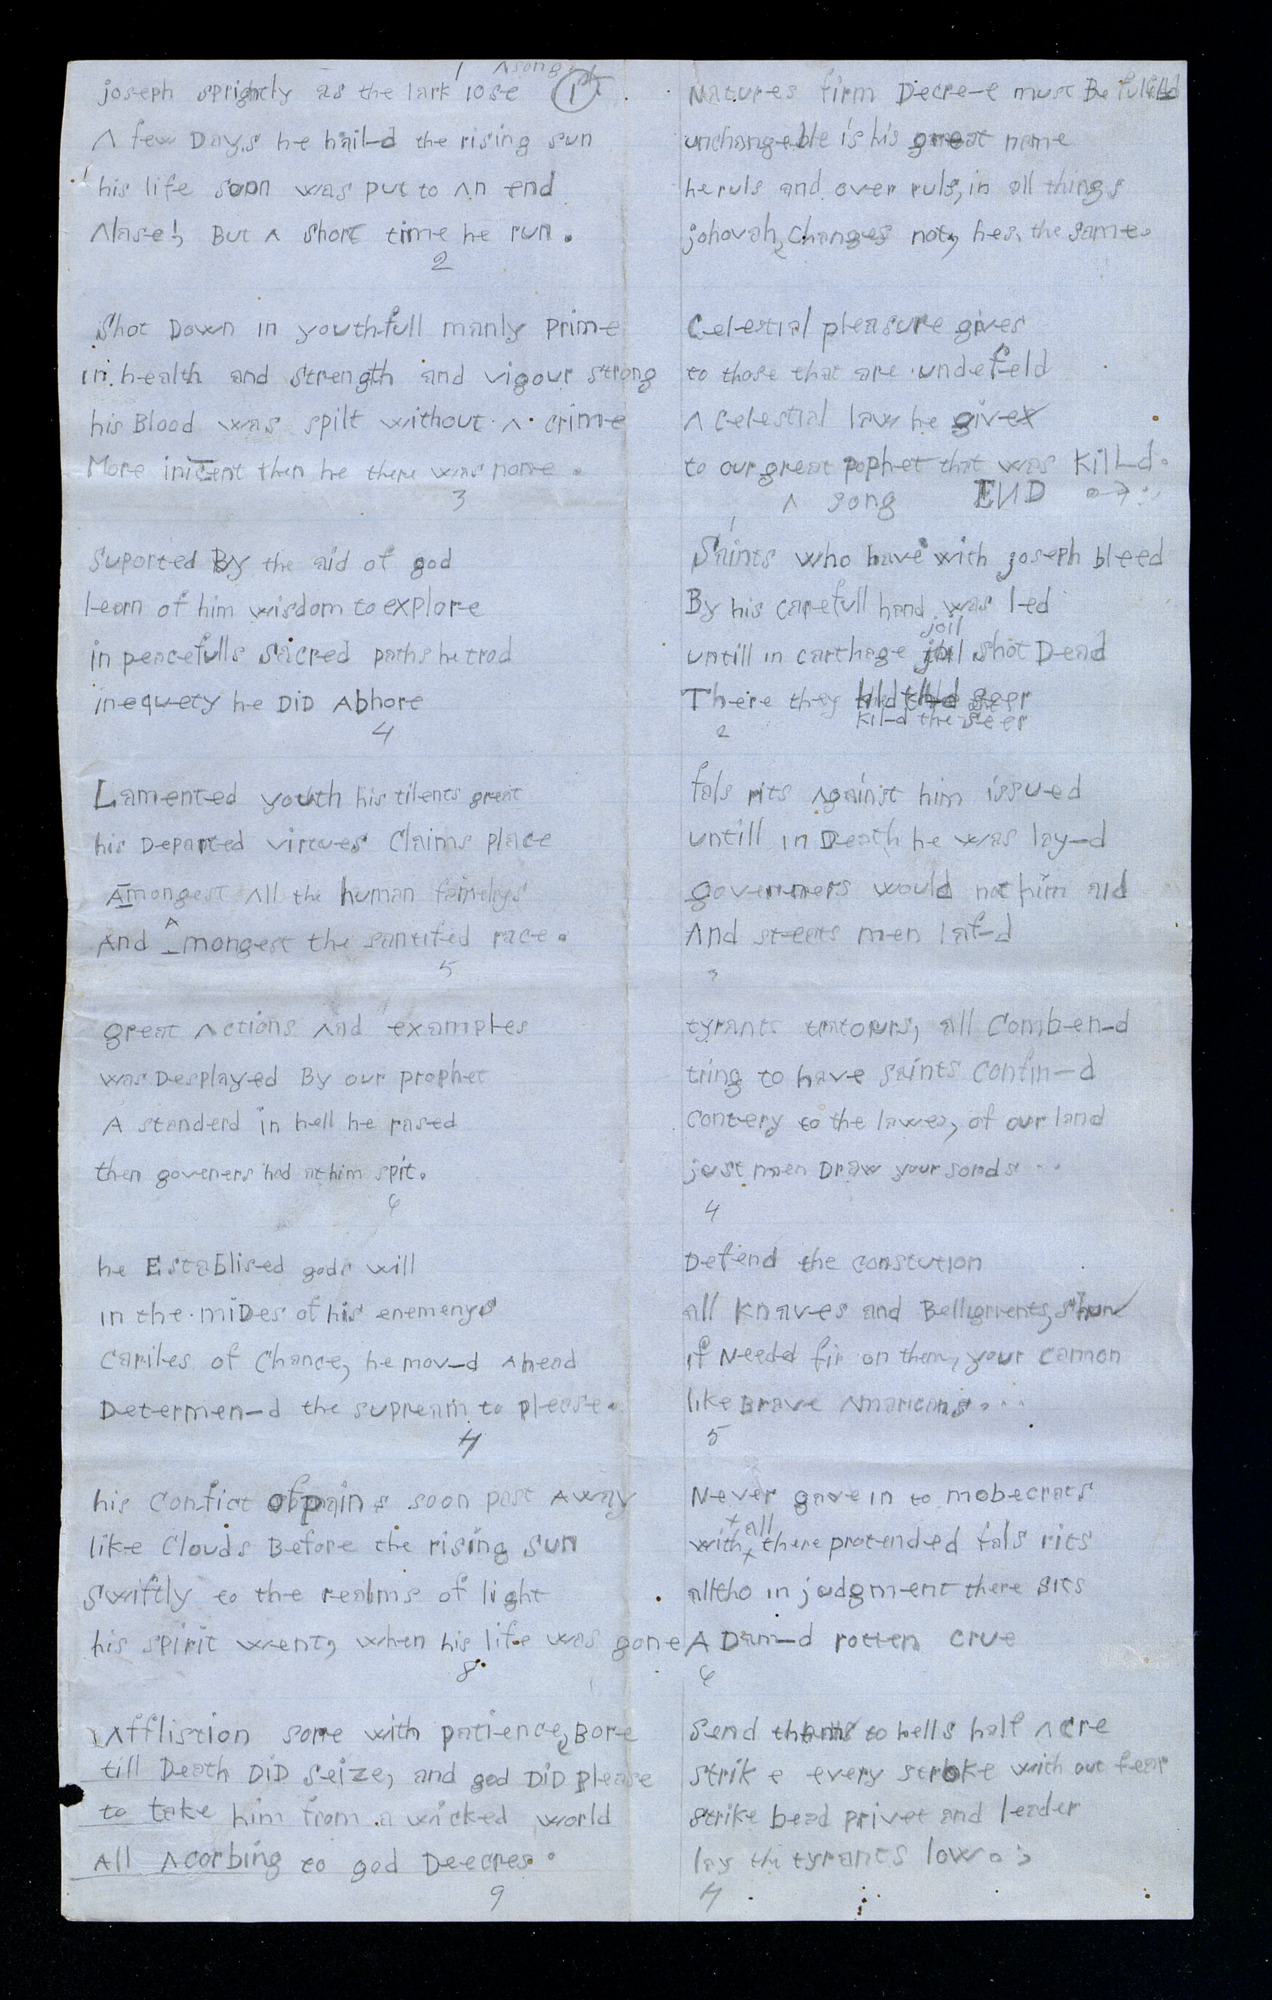 1 A song 1st
joseph sprightly as the lark rose
A few Days he hail-d the rising sun
his life soon was put to An end
Alase!, But A short time he run.
2
Shot Down in youth-full manly prime
in health and strength and vigour strong
his Blood was spilt without A crime
More inicent then he there was none.
3
Suported By the aid of god
learn of him wisdom to explore
in peacefulls sacred paths he trod
inequety he DiD Abhore
4
Lamented youth his tilents great
his Departed virtues Claims place
Amongest All the human familys
And Amongest the santifed race.
5
great Actions And examples
was Desplayed By our prophet
A standerd in hell he rased
then goveners had at him spit.
6
he Establised gods will
in the miDes of his enemenys
Cariles of Chance, he mov-d Ahead
Determen-d the supream to pleese.
7
his Confict of pain s soon past Away
like Clouds Before the rising sun
swiftly to the realms of light
his spirit went, when his life was gone
8
Affliction sore with patience, Bore
till Death DiD seize, and god DiD please
to take him from a wicked world
All Acorbing to god Deecres.
9
Natures firm Decre-e must Be fulfild
unchangeble is his great name
he ruls and over ruls, in all things
johovah, Changes not, hes, the same.
Celestial pleasure gives
to those that are undefeld
A Celestial law he gives
to our great pophet that was Kill-d.
A song END
1
Saints who have with joseph bleed
By his carefull hand was led
untill in carthage joil shot Dead
There they kil-d the seer
2
fals rits Against him issued
untill in Death he was lay-d
goverrners would not him aid
And steats men laf-d
3
tyrants tratours, all Comben-d
tring to have saints Confin-d
Contery to the lawes, of our land
just men Draw your sords
4
Defend the constution
all Knaves and Belligrrents, shun
if Needed fir on them, your cannon
like Brave Amaricans...
5
Never gave in to mobecrats
with all there protended fals rits
alltho in judgment there sits
A Dam-d rotten crue
6
Send to hells half Acre
strike every stroke with out fear
strike head privet and leader
lay the tyrants low.
7